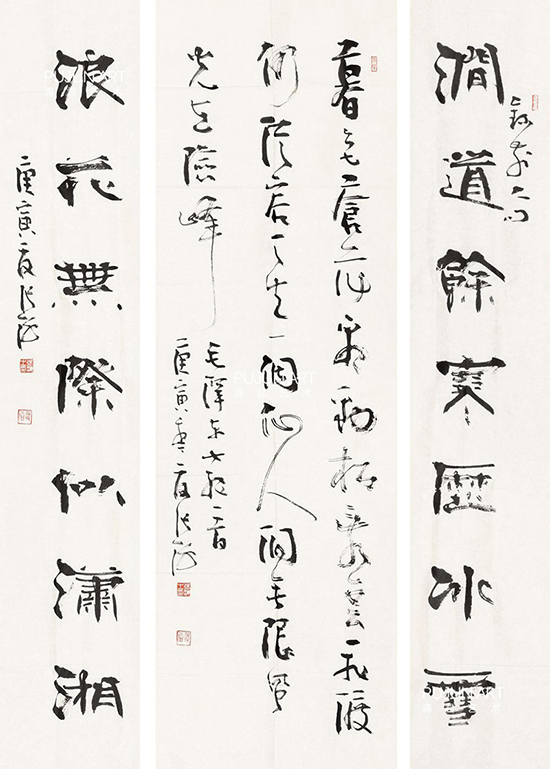 澗道餘寒歷冰雪
暮色蒼茫看勁松亂雲飛渡
仍從容天生一個仙人洞無限風
光在險峰
毛澤東七絕一首
庚寅夏張海
浪花無際似瀟湘
庚寅夏張海